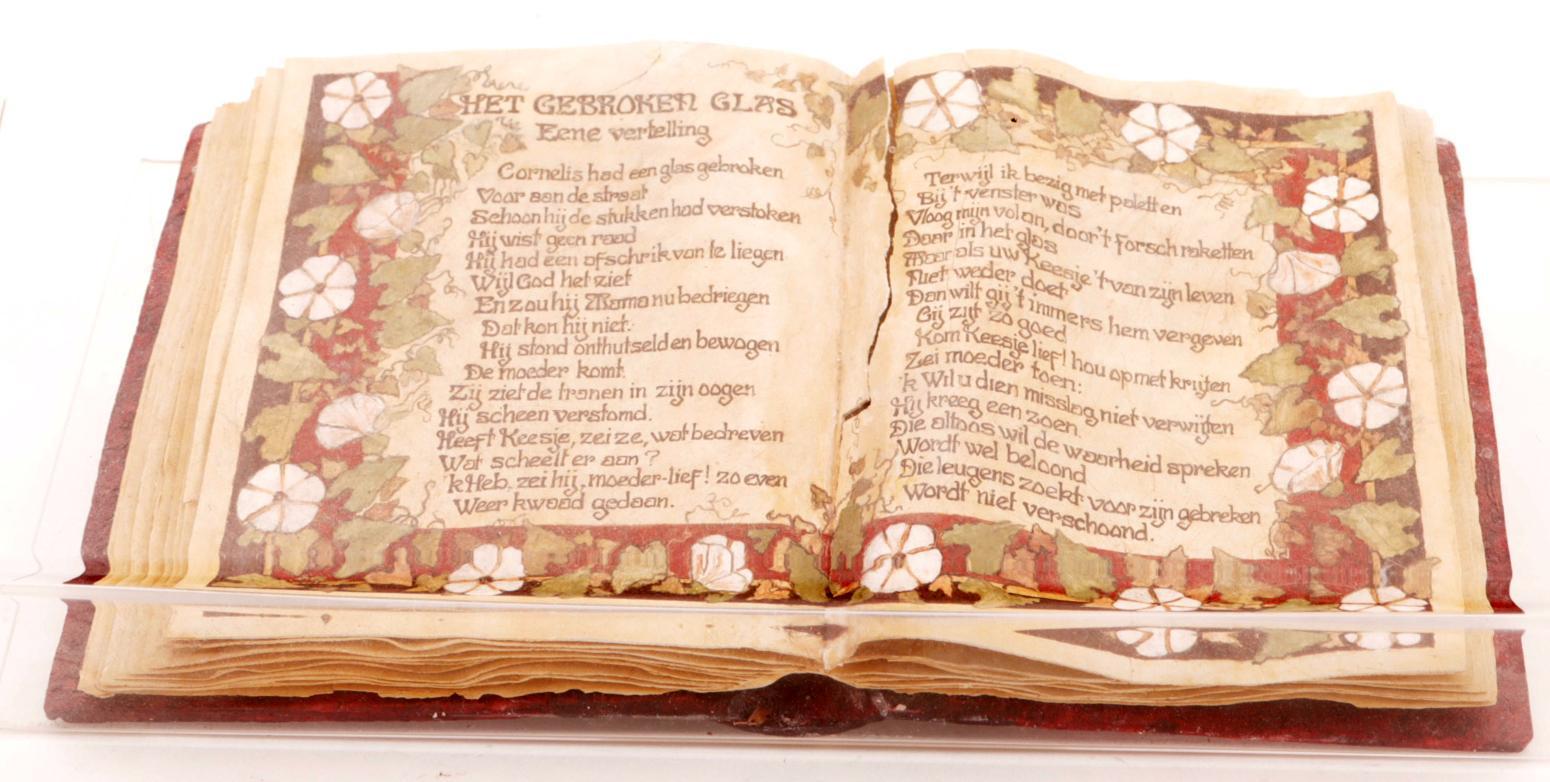 HET GEBROKEN GLAS
Eene vertelling
Cornelis had een glas gebroken
Voor aan de straat
Schoon hij de stukken had verstoken
Hij wist geen raad
Hij had een afschrik van te liegen
Wijl God het ziet
En zou hij Mama nu bedriegen
Dat kon hij niet.
Hij stond onthutseld en bewogen
De moeder komt
Zij ziet de tranen in zijn oogen
Hij scheen verstomd.
Heeft Keesje, zei ze, wat bedreven
Wat scheelt er aan?
'k Heb, zei hij, moeder-lief! zo even
Weer kwaad gedaan.
Terwijl ik bezig met paletten
Bij 't venster was
Vloog mijn volan, door 't forsch raketten
Daar in het glas
Maar als uw Keesje 't van zijn leven
Niet weder doet
Dan wilt gij 't immers hem vergeven
Gij zijt zo goed
Kom Keesje lief! hou op met krijten
Zei moeder toen:
'k Wil u dien misslag niet verwijten
Hij kreeg een zoen.
Die altoos wil de waarheid spreken
Wordt wel beloond
Die leugens zoekt voor zijn gebreken
Wordt niet verschoond.